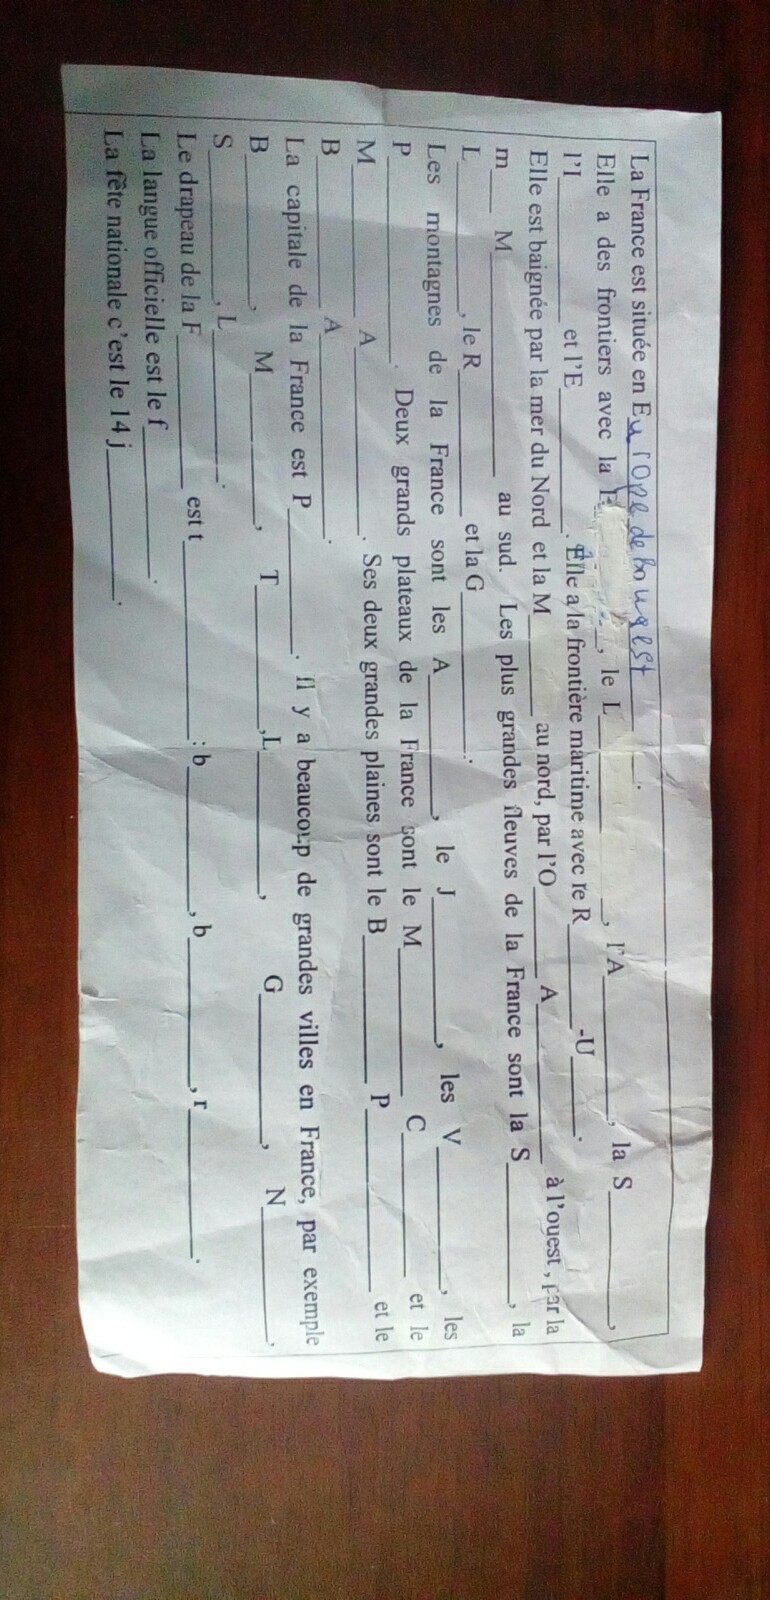 La France est située en Europe de bouqest.
Elle a des frontiers avec la ______, le L______, l'A______, la S______,
l'I______ et l'E______. Elle a la frontière maritime avec le R______-U______.
Elle est baignée par la mer du Nord et la M______ au nord, par l'O______ A______ à l'ouest, par la
m___ M______ au sud. Les plus grandes fleuves de la France sont la S______, la
L______, le R______ et la G______.
Les montagnes de la France sont les A______, le J______, les V______, les
P______. Deux grands plateaux de la France sont le M______ C______ et le
M______ A______. Ses deux grandes plaines sont le B______ P______ et le
B______ A______.
La capitale de la France est P______. Il y a beaucoup de grandes villes en France, par exemple
B______, M______, T______, L______, G______, N______,
S______, L______.
Le drapeau de la F______ est t______: b______, b______, r______.
La langue officielle est le f______.
La fête nationale c'est le 14 j______.